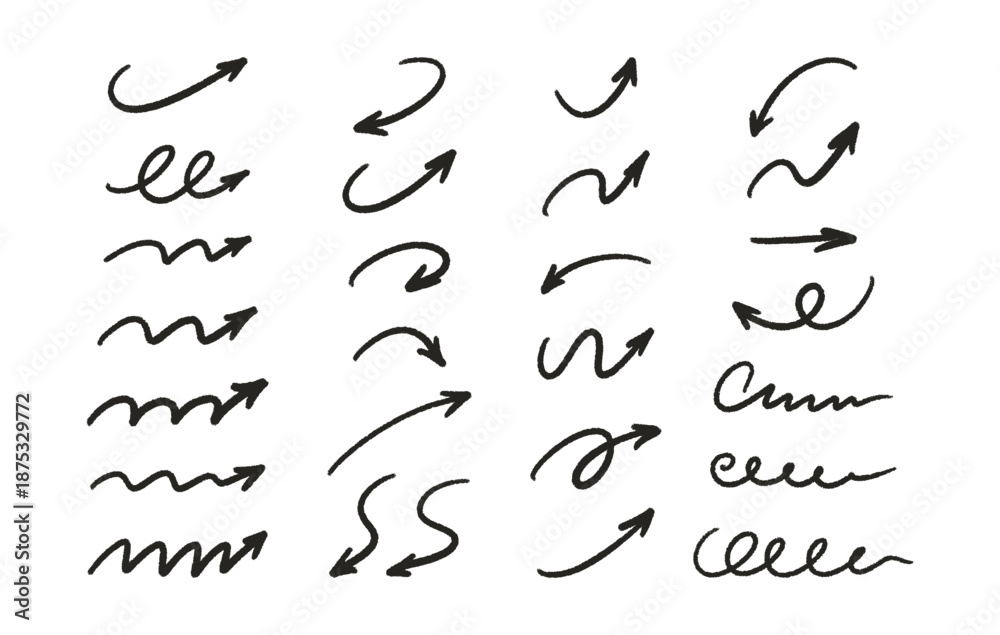 Adobe Stock | #1875329772